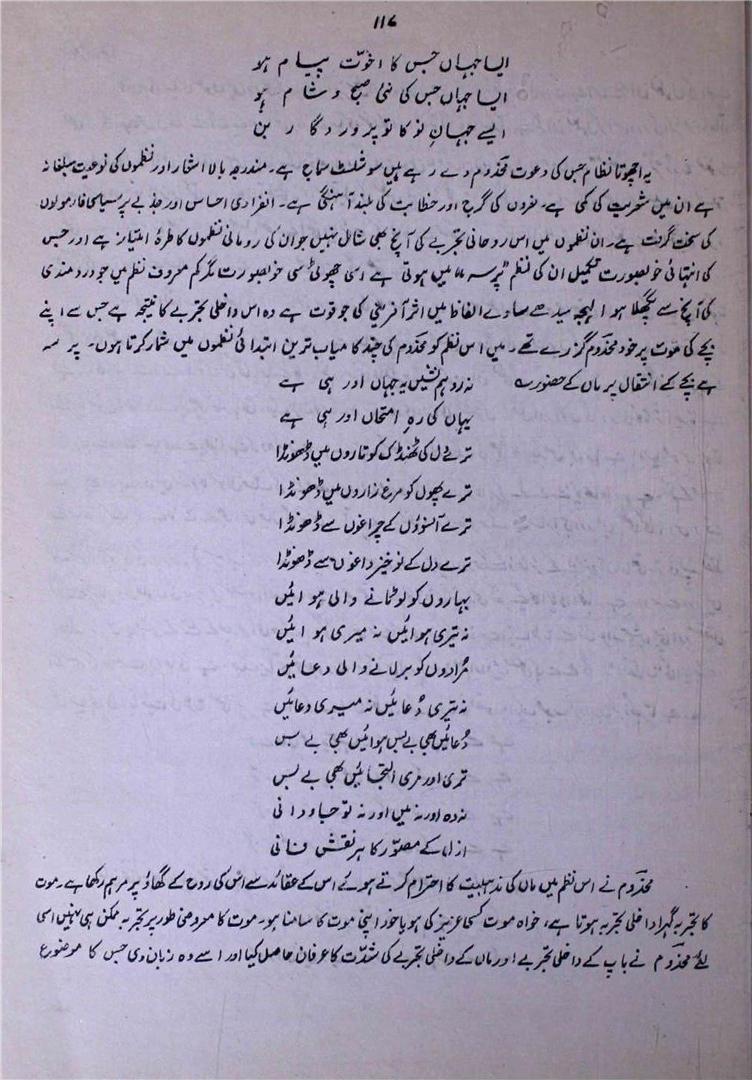 ۱۱۷
ایسا جہاں جس کا اخوّت پیام ہو
ایسا جہاں جس کی نئی صبح و شام ہو
ایسے جہانِ نو کا تو پروردگار بن
یہ اچھوتا نظام جس کی دعوت مخدوم دے رہے ہیں سوشلسٹ سماج ہے۔ مندرجہ بالا اشعار اور نظموں کی نوعیت مبلغانہ
ہے ان میں شعریت کی کمی ہے۔ نعروں کی گرج اور خطابت کی بلند آہنگی ہے۔ انفرادی احساس اور جذبے پر سیاسی فارمولوں
کی سخت گرفت ہے۔ ان نظموں میں اس روحانی تجربے کی آنچ بھی شامل نہیں جو ان کی رومانی نظموں کا طرۂ امتیاز ہے اور جس
کی انتہائی خوبصورت تشکیل ان کی نظم "پرسہ" میں ہوتی ہے اسی چھوٹی سی خوبصورت مگر کم معروف نظم میں جو درد مندی
کی آنچ سے پگھلا ہوا لہجہ سیدھے سادے الفاظ میں اثر آفرینی کی جو قوت ہے وہ اس داخلی تجربے کا نتیجہ ہے جس سے اپنے
بچے کی موت پر خود مخدوم گزرے تھے۔ میں اس نظم کو مخدوم کی چند کامیاب ترین ابتدائی نظموں میں شمار کرتا ہوں۔ پرسہ
ہے بچے کے انتقال پر ماں کے حضور سے
نہ رو ہم نشیں یہ جہاں اور ہی ہے
یہاں کی رہِ امتحاں اور ہی ہے
ترے دل کی ٹھنڈک کو تاروں میں ڈھونڈا
ترے پھول کو مرغزاروں میں ڈھونڈا
ترے آنسوؤں کے چراغوں سے ڈھونڈا
ترے دل کے نوخیز داغوں سے ڈھونڈا
بہاروں کو لوٹانے والی ہوائیں
نہ تیری ہوائیں نہ میری ہوائیں
مُرادوں کو بر لانے والی دعائیں
نہ تیری دُعائیں نہ میری دعائیں
دُعائیں بھی بے بس ہوائیں بھی بے بس
تری اور مری التجائیں بھی بے بس
نہ وہ اور نہ میں اور نہ تو جاودانی
ازل کے مصوّر کا ہر نقش فانی
مخدوم نے اس نظم میں ماں کی مذہبیت کا احترام کرتے ہوئے اس کے عقائد سے اس کی روح کے گھاؤ پر مرہم رکھا ہے۔ موت
کا تجربہ گہرا داخلی تجربہ ہوتا ہے، خواہ موت کسی عزیز کی ہو یا خود اپنی موت کا سامنا ہو۔ موت کا معروضی طور پر تجربہ ممکن ہی نہیں اسی
لئے مخدوم نے باپ کے داخلی تجربے اور ماں کے داخلی تجربے کی شدّت کا عرفان حاصل کیا اور اسے وہ زبان دی جس کا موضوع